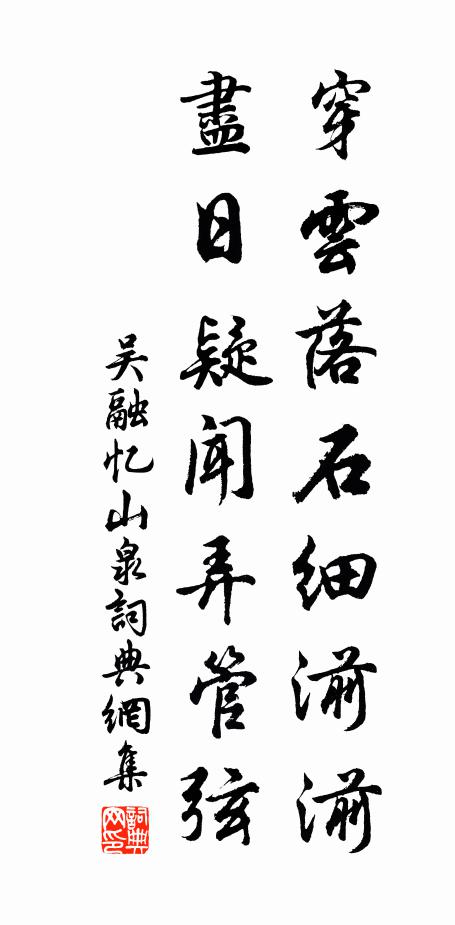 穿雲落石細湔湔
盡日疑聞弄管弦
吴融忆山泉詞典網集
詞典网印